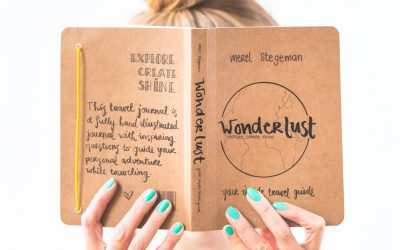 EXPLORE
CREATE
SHINE
This travel journal is
a fully hand illustrated
journal with inspiring
questions to guide your
personal adventure
while traveling.
Merel Stegeman
Wonderlust
merel Stegeman
Wonderlust
explore, create, shine
your inside travel guide